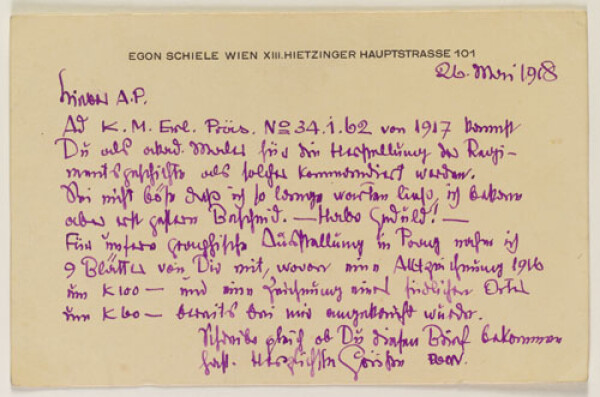 EGON SCHIELE WIEN XIII. HIETZINGER HAUPTSTRASSE 101
26. Mai 1918
Lieber A.P.
Ad K.M. Erl. Präs. No 34.1.62 von 1917 kannst
Du als akad. Maler für die Herstellung der Regi-
mentsgeschichte als solcher kommandiert werden.
Sei nicht böse daß ich so lange warten ließ, ich bekam
aber erst gestern Bescheid. — Habe Geduld! —
Für unsere graphische Ausstellung in Prag nahm ich
9 Blätter von Dir mit, wovon eine Aktzeichnung 1916
um K 100 — und eine Zeichnung eines Ortes
um K 60 — bereits bei mir angekauft wurde.
Schreibe gleich ob Du diesen Brief bekommen
hast. Herzlichste Grüße